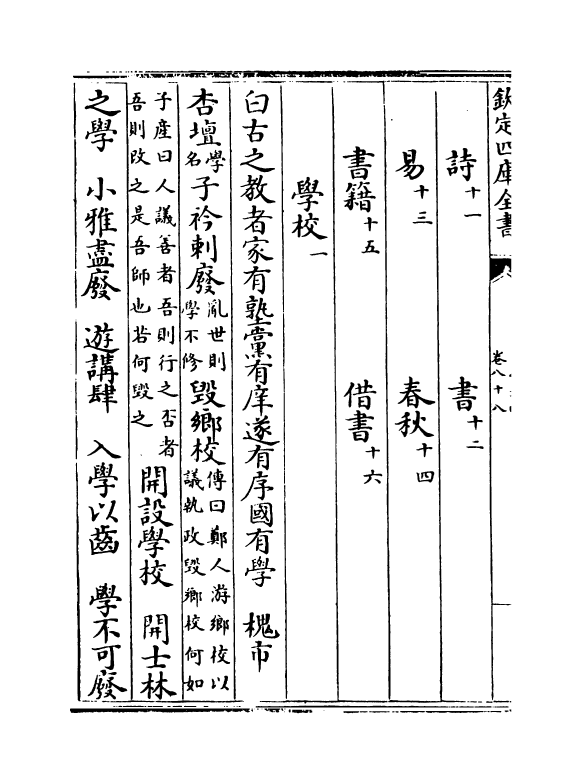 欽定四庫全書
卷八十八
詩十一
書十二
易十三
春秋十四
書籍十五
借書十六
學校一
曰古之教者家有塾黨有庠遂有序國有學　槐市
杏壇學名子衿刺廢亂世則學不修毀鄉校傳曰鄭人游鄉校以議執政毀鄉校何如
子産曰人議善者吾則行之否者吾則改之是吾師也若何毀之開設學校　開士林
之學　小雅盡廢　遊講肆　入學以齒　學不可廢